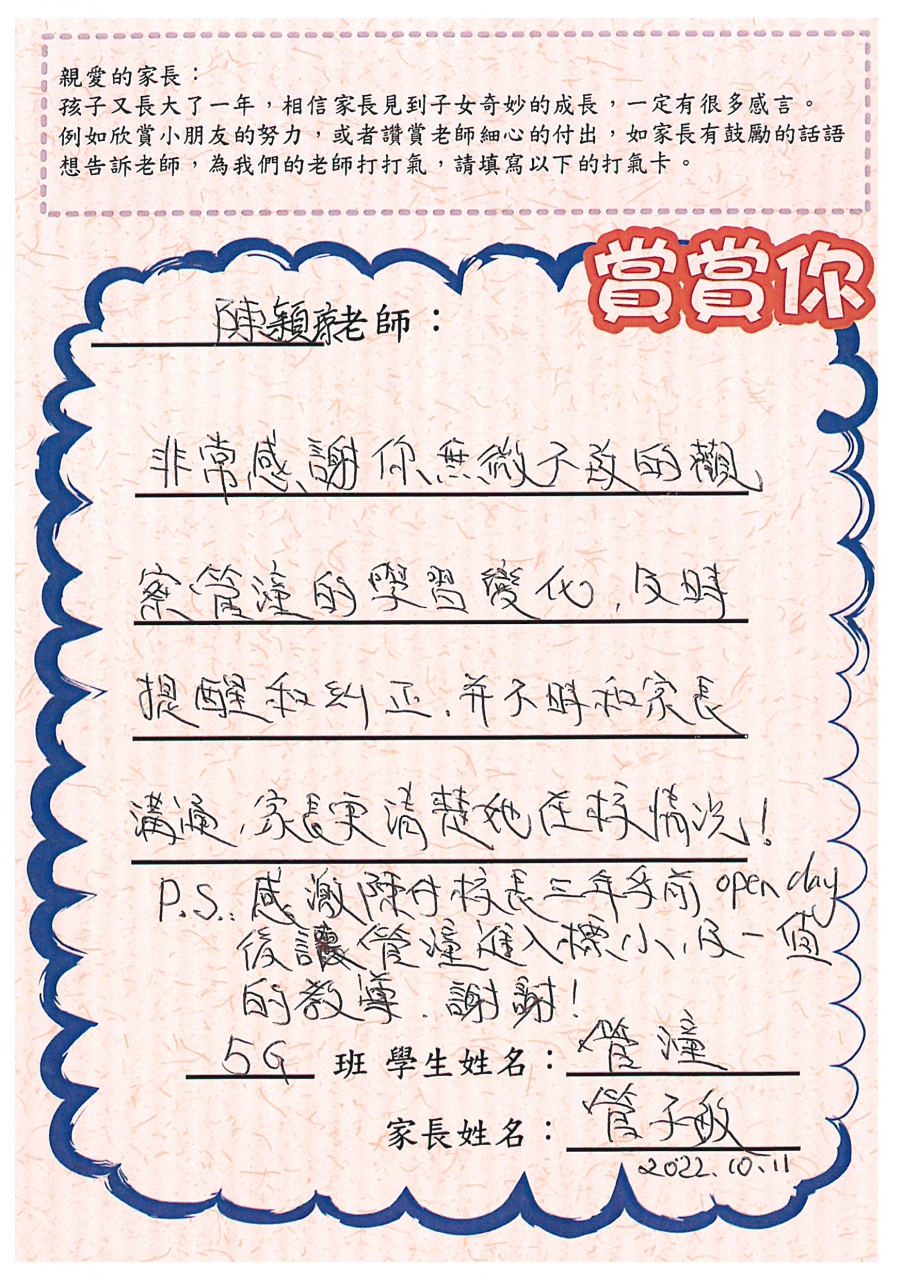 親愛的家長：
孩子又長大了一年，相信家長見到子女奇妙的成長，一定有很多感言。
例如欣賞小朋友的努力，或者讚賞老師細心的付出，如家長有鼓勵的話語
想告訴老師，為我們的老師打打氣，請填寫以下的打氣卡。
賞賞你
陳穎老師：
非常感謝你無微不致的觀
察管潼的學習變化，及時
提醒和糾正，并不時和家長
溝通，家長更清楚她在校情況！
P.S.：感激陳校長三年多前 open day
後讓管潼進入標小，及一值
的教導，謝謝！
5G 班 學生姓名：管潼
家長姓名：管子敏
2022.10.11